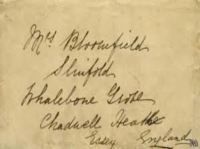 Mrs Bloomfield
Slinfold
Whalebone Grove
Chadwell Heath
Essex England